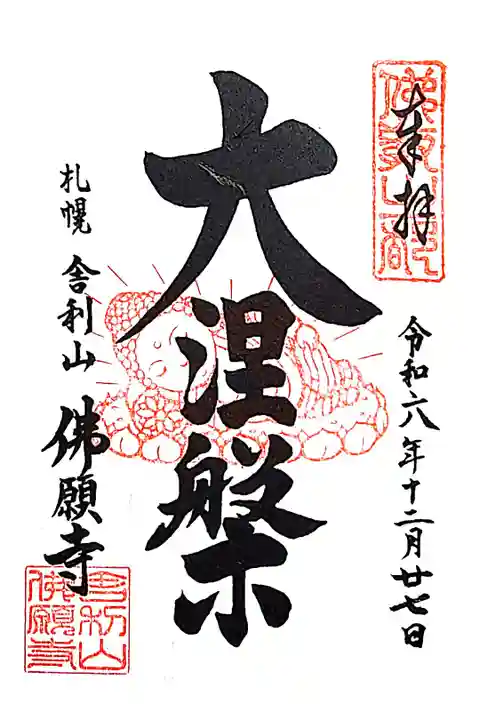 奉拝
令和六年十二月廿七日
大涅槃
札幌 舎利山 佛願寺
舎利山
佛願寺